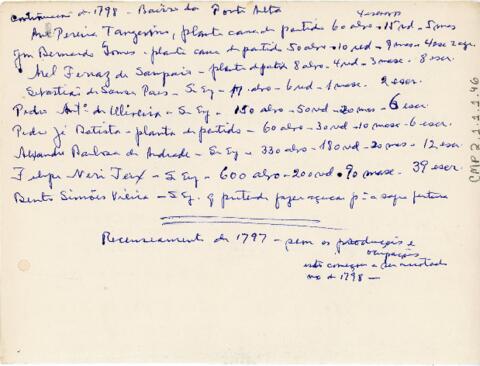 continuação de 1798 - Bairro da Ponte Alta
4 escravos
Ant Pereira Tangerino, planta cana de partido 60 alvo - 15 red - 5 mas
Gm Bernardo Gomes - planta cana de partido 50 alvo - 10 red - 9 masc - 4 esc
Mel Ferraz de Sampaio - planta de partido 8 alvo - 4 red - 3 masc - 8 escr
Sebastião de Sousa Paes - S. Eng - 17 alvo - 6 red - 1 masc 2 escr.
Pedro Antº de Oliveira - S. Eng - 150 alvo - 50 red - 20 masc - 6 escr.
Pedro Jé Batista - planta de partido - 60 alvo - 30 red - 10 masc - 6 escr.
Alejandro Barbosa de Andrade - S. Eng - 330 alvo - 180 red - 20 mas - 12 escr
Felipe Neri Teix - S. Eng - 600 alvo - 200 red - 90 masc. 39 escr.
Bento Simões Vieira - S. Eng. q pretende fazer açucar pª a safra futura
Recenseamento de 1797 - sem as produções e
ocupações
esta começou a ser anotada
no de 1798 -
CMP 2.1.1.1.46